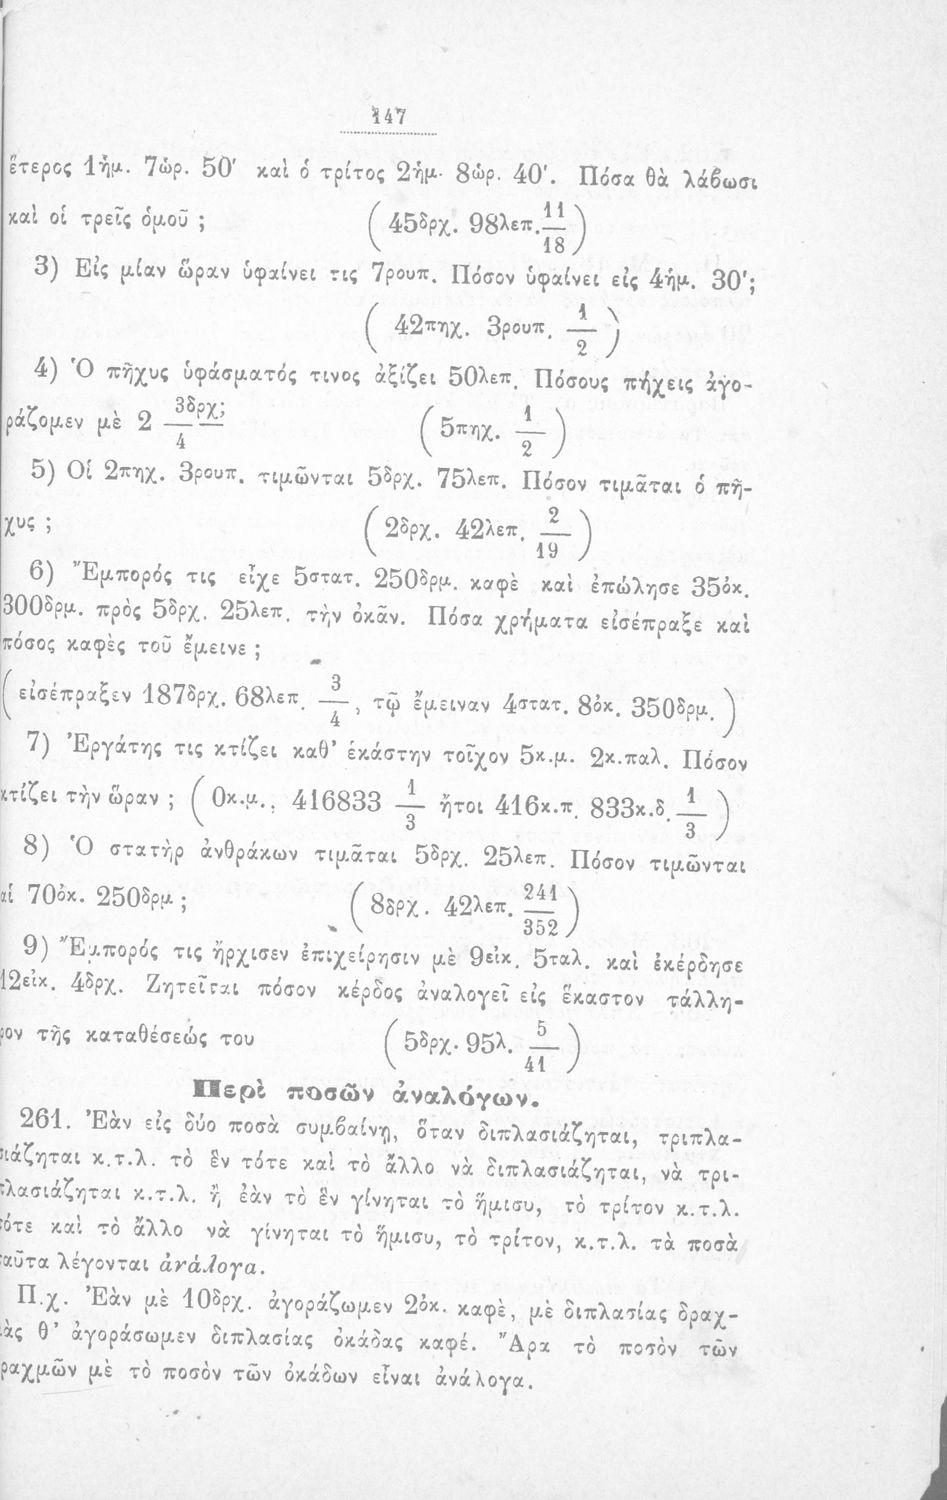 147
ἕτερος 1ἡμ. 7ὡρ. 50′ καὶ ὁ τρίτος 2ἡμ. 8ὡρ. 40′. Πόσα θὰ λάβωσι
καὶ οἱ τρεῖς ὁμοῦ ; ( 45δρχ. 98λεπ. 11/18 )
3) Εἰς μίαν ὥραν ὑφαίνει τις 7ρουπ. Πόσον ὑφαίνει εἰς 4ἡμ. 30′;
( 42πηχ. 3ρουπ. 1/2 )
4) Ὁ πῆχυς ὑφάσματός τινος ἀξίζει 50λεπ. Πόσους πήχεις ἀγο-
ράζομεν μὲ 2 3δρχ;/4 ( 5πηχ. 1/2 )
5) Οἱ 2πηχ. 3ρουπ. τιμῶνται 5δρχ. 75λεπ. Πόσον τιμᾶται ὁ πῆ-
χυς ; ( 2δρχ. 42λεπ. 2/19 )
6) Ἔμπορός τις εἶχε 5στατ. 250δρμ. καφὲ καὶ ἐπώλησε 35ὀκ.
300δρμ. πρὸς 5δρχ. 25λεπ. τὴν ὀκᾶν. Πόσα χρήματα εἰσέπραξε καὶ
πόσος καφὲς τοῦ ἔμεινε ;
( εἰσέπραξεν 187δρχ. 68λεπ. 3/4, τῷ ἔμειναν 4στατ. 8ὀκ. 350δρμ. )
7) Ἐργάτης τις κτίζει καθ' ἑκάστην τοῖχον 5κ.μ. 2κ.παλ. Πόσον
κτίζει τὴν ὥραν ; ( 0κ.μ., 416833 1/3 ἤτοι 416κ.π. 833κ.δ. 1/3 )
8) Ὁ στατὴρ ἀνθράκων τιμᾶται 5δρχ. 25λεπ. Πόσον τιμῶνται
αἱ 70ὀκ. 250δρμ ; ( 8δρχ. 42λεπ. 241/352 )
9) Ἔμπορός τις ἤρχισεν ἐπιχείρησιν μὲ 9εἰκ. 5ταλ. καὶ ἐκέρδησε
12εἰκ. 4δρχ. Ζητεῖται πόσον κέρδος ἀναλογεῖ εἰς ἕκαστον τάλλη-
ρον τῆς καταθέσεώς του ( 5δρχ. 95λ. 5/41 )
Περὶ ποσῶν ἀναλόγων.
261. Ἐὰν εἰς δύο ποσὰ συμβαίνῃ, ὅταν διπλασιάζηται, τριπλα-
σιάζηται κ.τ.λ. τὸ ἓν τότε καὶ τὸ ἄλλο νὰ διπλασιάζηται, νὰ τρι-
πλασιάζηται κ.τ.λ. ἢ ἐὰν τὸ ἓν γίνηται τὸ ἥμισυ, τὸ τρίτον κ.τ.λ.
τότε καὶ τὸ ἄλλο νὰ γίνηται τὸ ἥμισυ, τὸ τρίτον, κ.τ.λ. τὰ ποσὰ
ταῦτα λέγονται ἀνάλογα.
Π.χ. Ἐὰν μὲ 10δρχ. ἀγοράζωμεν 2ὀκ. καφὲ, μὲ διπλασίας δραχ-
μὰς θ' ἀγοράσωμεν διπλασίας ὀκάδας καφέ. Ἄρα τὸ ποσὸν τῶν
δραχμῶν μὲ τὸ ποσὸν τῶν ὀκάδων εἶναι ἀνάλογα.